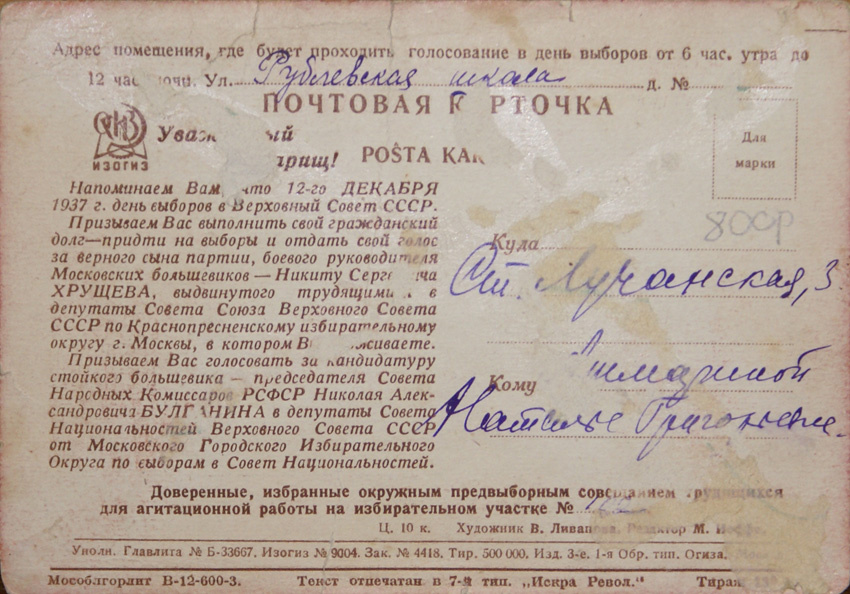 Адрес помещения, где будет проходить голосование в день выборов от 6 час. утра до
12 час ночи. Ул. Рублевская школа д. №
ПОЧТОВАЯ К РТОЧКА
Уваж ый
арищ! POŜTA KAR
ИЗОГИЗ
Для
марки
Напоминаем Вам, что 12-го ДЕКАБРЯ
1937 г. день выборов в Верховный Совет СССР.
Призываем Вас выполнить свой гражданский
долг—придти на выборы и отдать свой голос
за верного сына партии, боевого руководителя
Московских большевиков — Никиту Серг ича
ХРУЩЕВА, выдвинутого трудящими в
депутаты Совета Союза Верховного Совета
СССР по Краснопресненскому избирательному
округу г. Москвы, в котором В живаете.
Призываем Вас голосовать за кандидатуру
стойкого большевика — председателя Совета
Народных Комиссаров РСФСР Николая Алек-
сандровича БУЛГАНИНА в депутаты Совета
Национальностей Верховного Совета СССР
от Московского Городского Избирательного
Округа по выборам в Совет Национальностей.
80СР
Куда
Ст. Лучанская, 3
Кому
Наталье Григорьевне.
Доверенные, избранные окружным предвыборным совещанием трудящихся
для агитационной работы на избирательном участке №
Ц. 10 к. Художник В. Ливанова. Редактор М. Иоффе.
Уполн. Главлита № Б-33667. Изогиз № 9004. Зак. № 4418. Тир. 500 000. Изд. 3-е. 1-я Обр. тип. Огиза.
Мособлгорлит В-12-600-3. Текст отпечатан в 7-й тип. „Искра Револ." Тираж